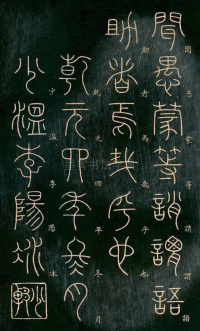 聞愚蒙等誚謂語
助者焉哉乎也
乾元四年月
少溫李陽冰